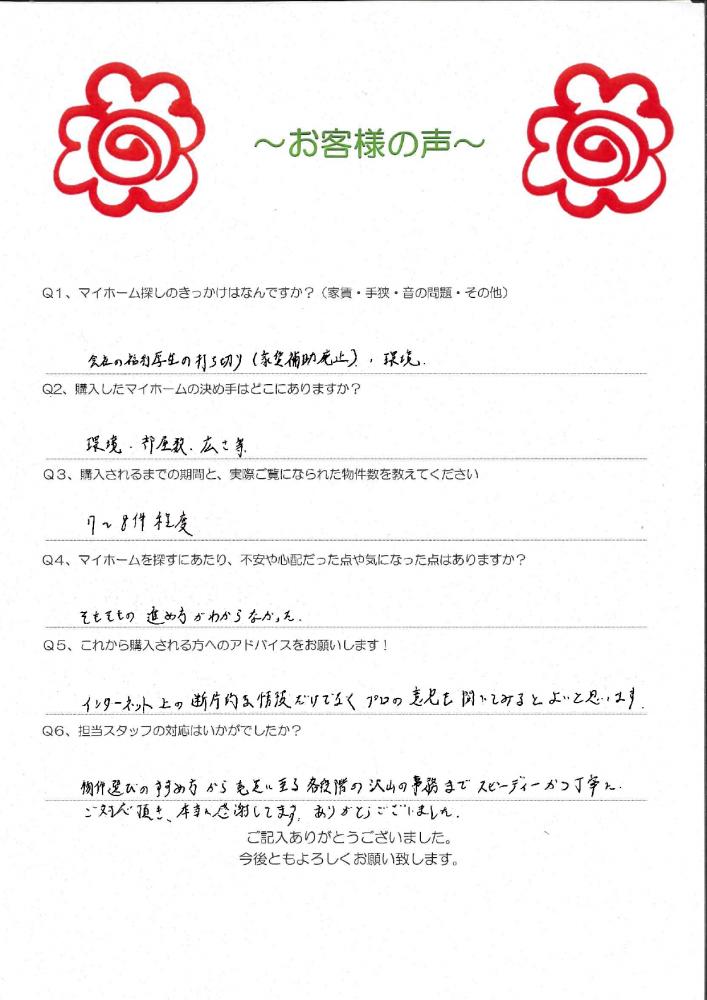 ～お客様の声～
Q1、マイホーム探しのきっかけはなんですか？（家賃・手狭・音の問題・その他）
会社の福利厚生の打ち切り（家賃補助廃止）、環境.
Q2、購入したマイホームの決め手はどこにありますか？
環境、部屋数、広さ等
Q3、購入されるまでの期間と、実際ご覧になられた物件数を教えてください
7～8件程度
Q4、マイホームを探すにあたり、不安や心配だった点や気になった点はありますか？
そもそもの進め方がわからなかった.
Q5、これから購入される方へのアドバイスをお願いします！
インターネット上の断片的な情報だけでなく プロの意見も聞いてみるとよいと思います.
Q6、担当スタッフの対応はいかがでしたか？
物件選びのすすめ方から 至る 各段階の沢山の事務まで スピーディーかつ丁寧に
ご対応頂き、本当に感謝してます。ありがとうございました.
ご記入ありがとうございました。
今後ともよろしくお願い致します。